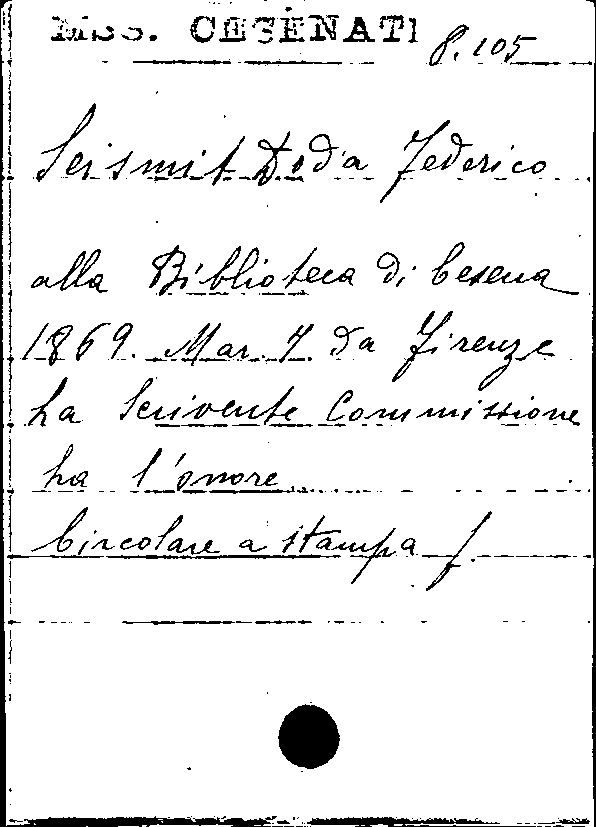 MSS. CESENATI P. 105
Seismit Doda Federico
alla Biblioteca di Cesena
1869. Mar. 7. da Firenze
La Scrivente Commissione
ha l'onore
Circolare a stampa f.